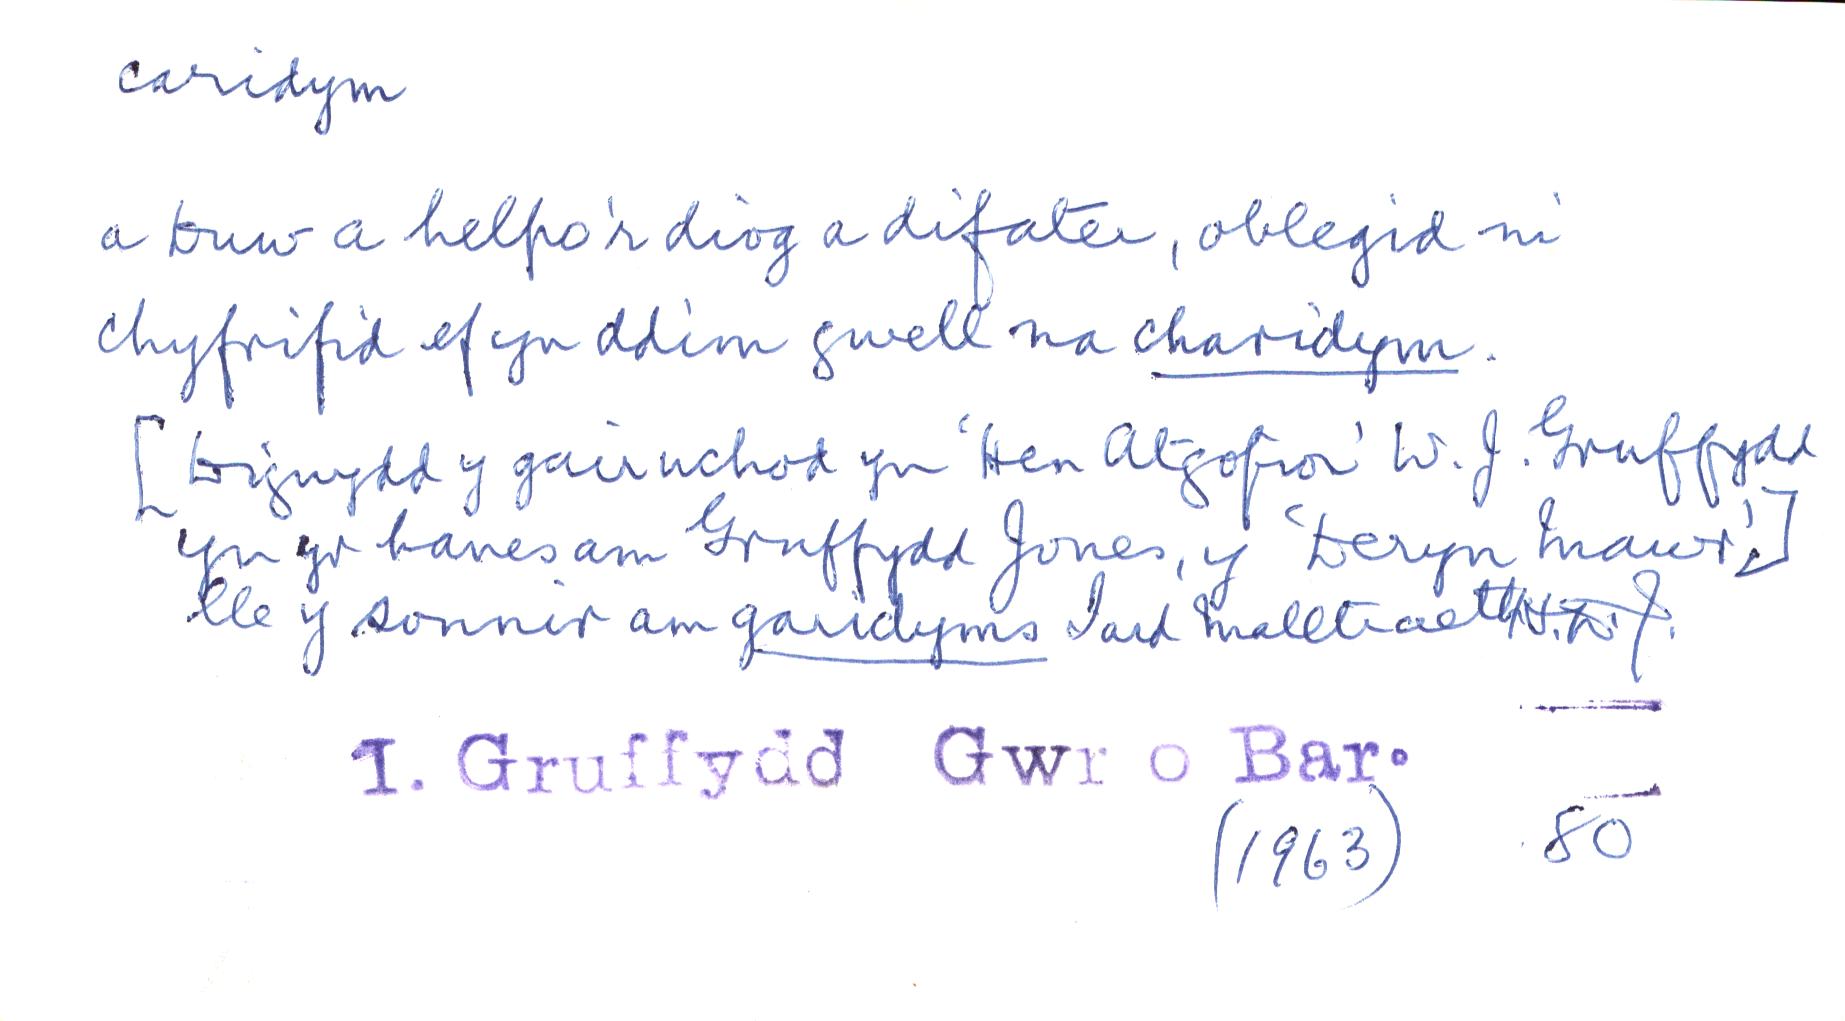 caridym
a Duw a helpo'r diog a difater, oblegid ni
chyfrifid ef yn ddim gwell na charidym.
[Digwydd y gair uchod yn 'Hen Atgofion' W. J. Gruffydd
yn yr hanes am Gruffydd Jones, y 'Deryn Mawr',]
lle y sonnir am garidyms Iard Malltraeth
I. Gruffydd Gwr o Bar.
(1963) 80